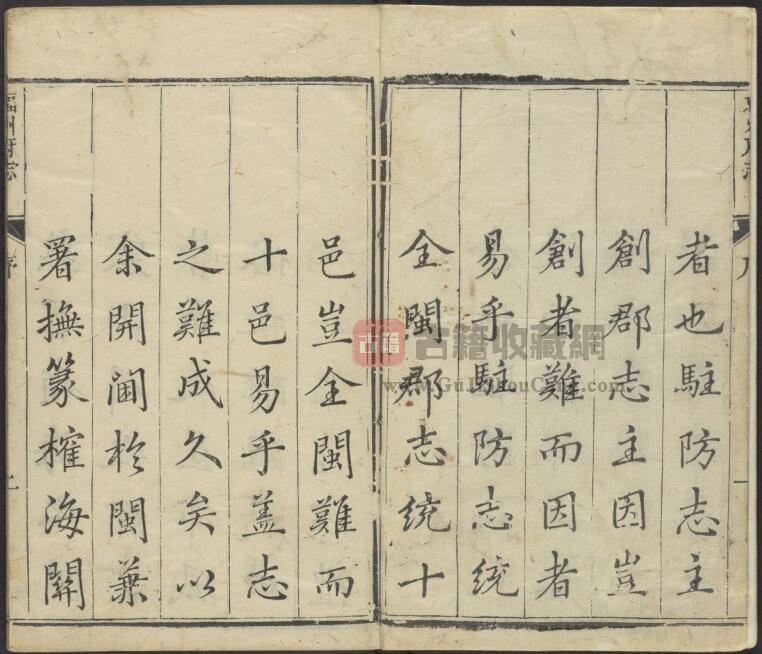 者也駐防志主
創郡志主因豈
創者難而因者
易乎駐防志統
全閩郡志統十
邑豈全閩難而
十邑易乎蓋志
之難成久矣以
余開閫於閩兼
署撫篆榷海關
福州府志
序
古籍
古籍收藏網